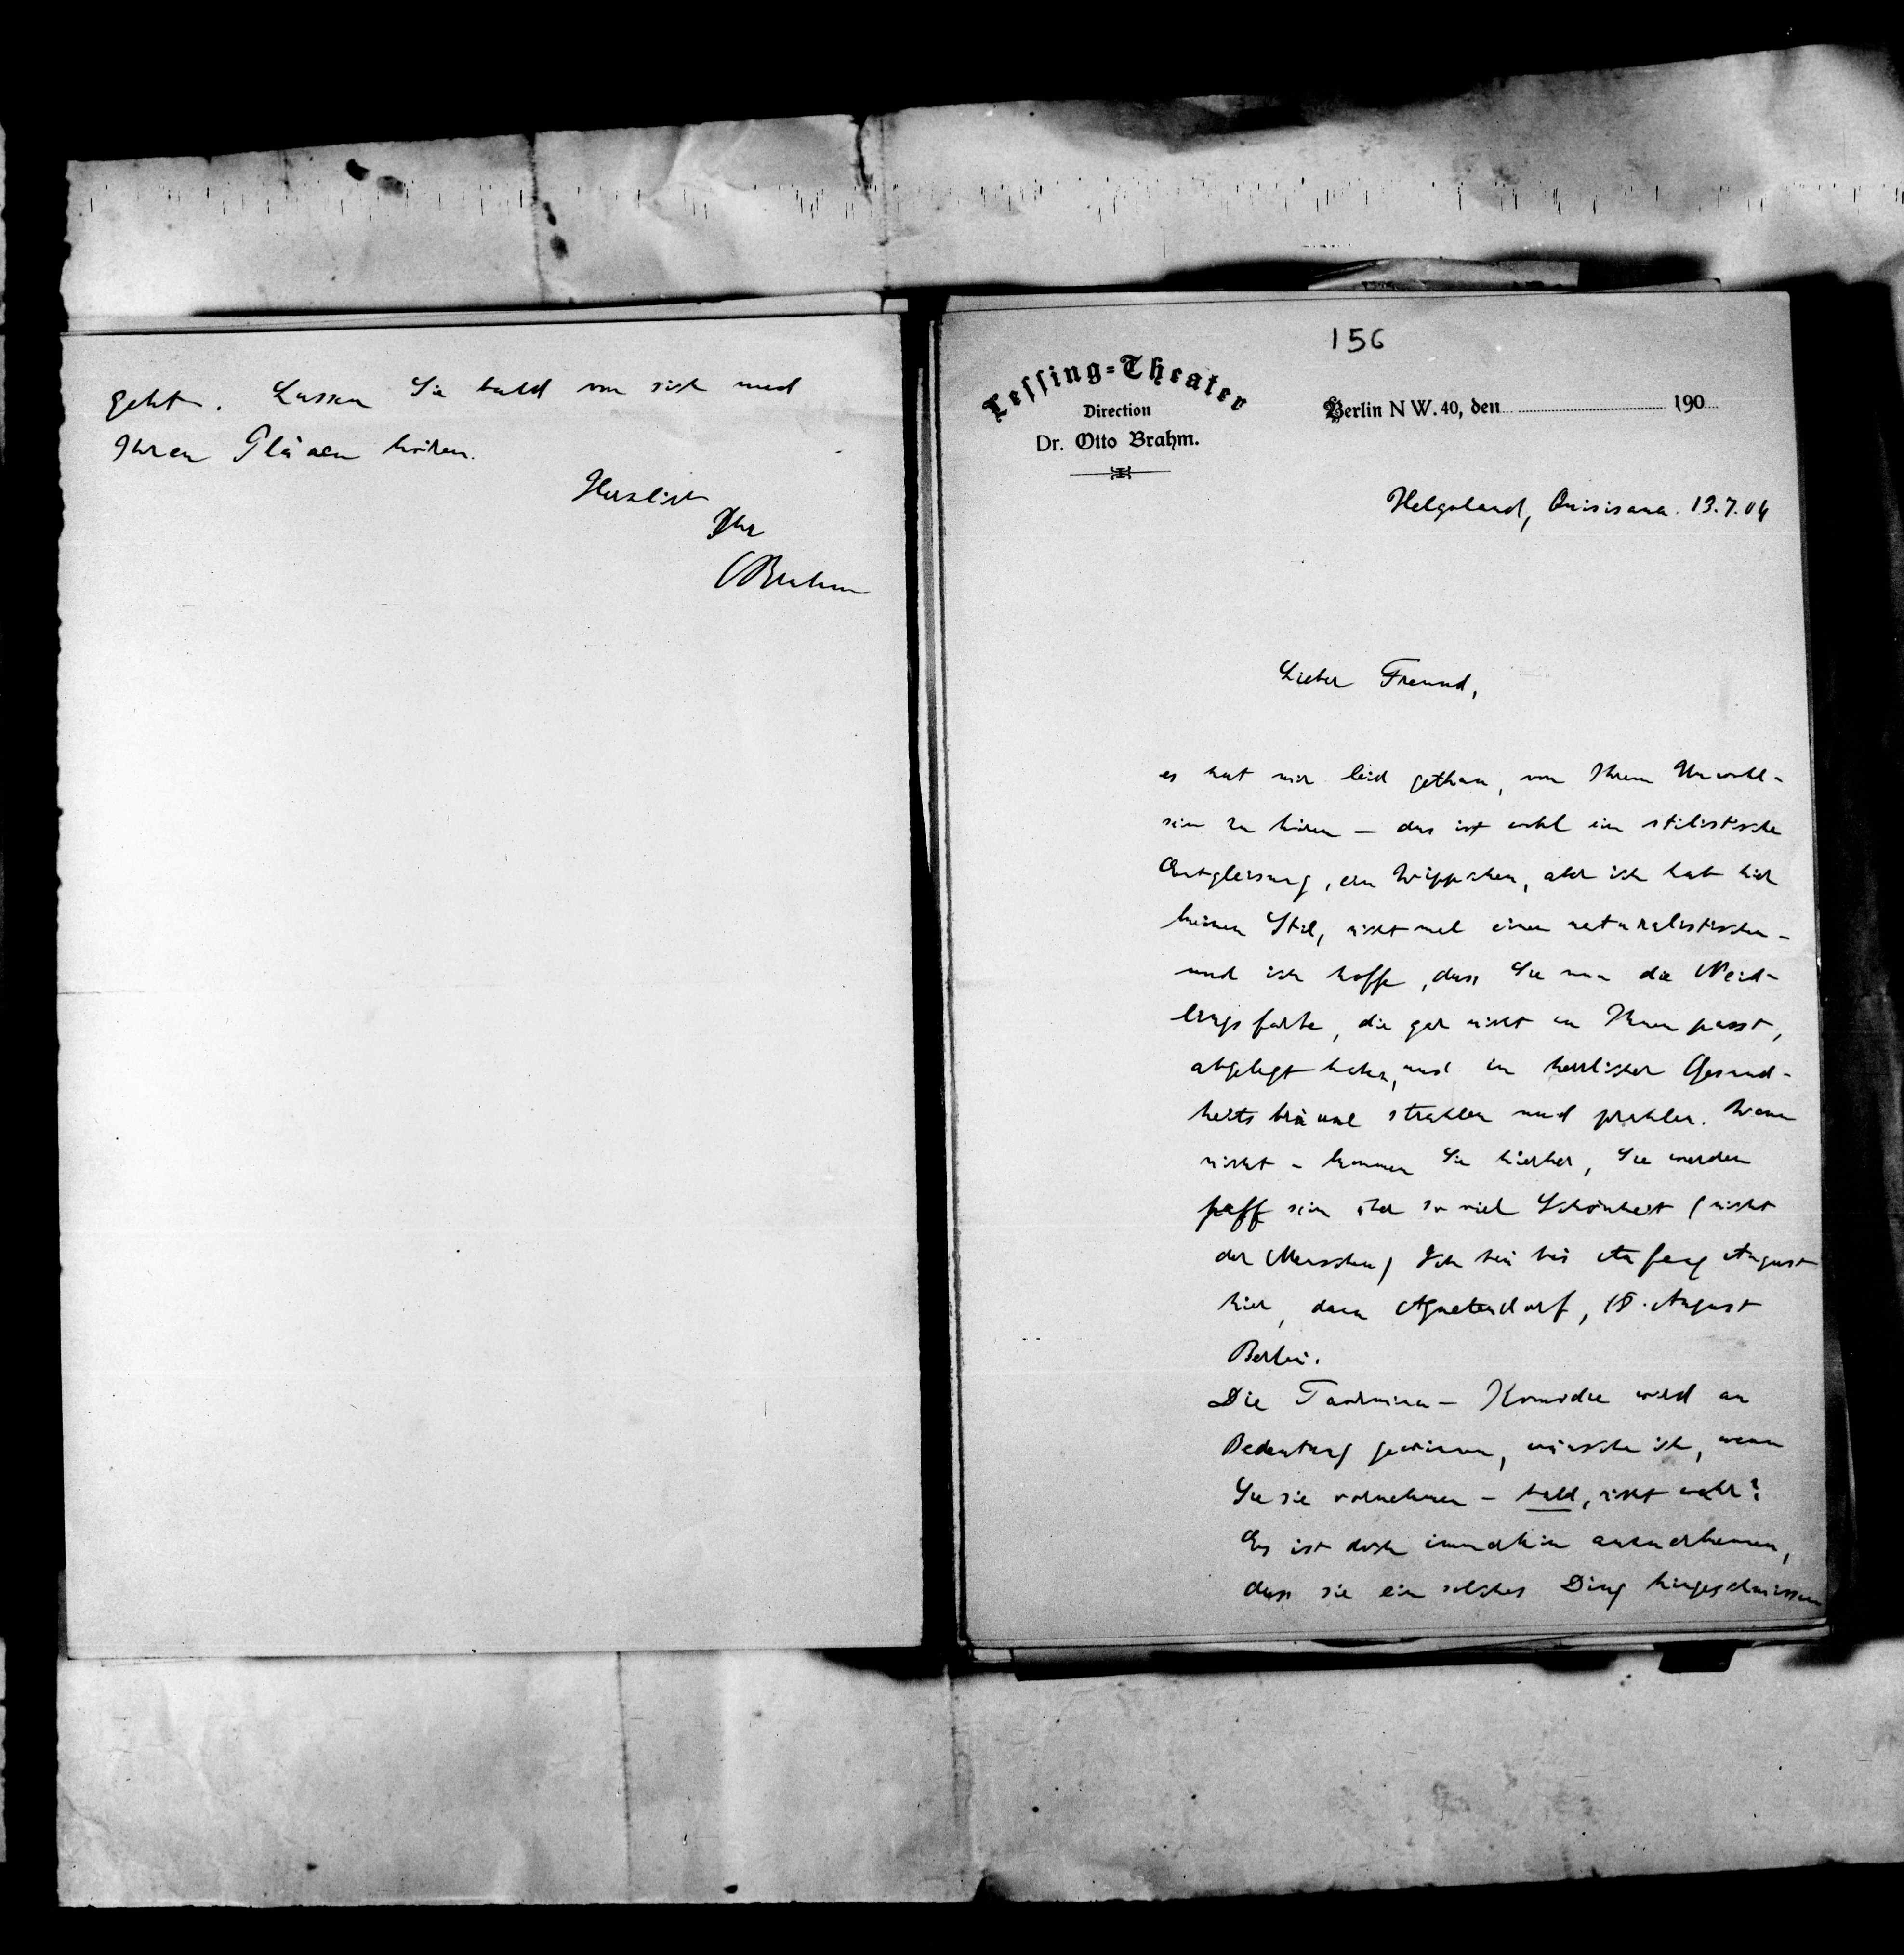 geht. Lassen Sie bald von sich und
Ihren Plänen hören.
Herzlich
Ihr
OBrahm
156
Lessing=Theater
Direction
Dr. Otto Brahm.
Berlin NW. 40, den 190
Helgoland, Quisisana. 13.7.04
Lieber Freund,
es hat mir leid gethan, von Ihrem Unwohl-
sein zu hören – das ist wohl eine stilistische
Entgleisung, ein Wippchen, aber ich hab hier
keinen Stil, nicht mal einen naturalistischen –
und ich hoffe, dass Sie nun die Neid-
lingsfarbe, die gar nicht zu Ihnen passt,
abgelegt haben, und in herrlicher Gesund-
heitsbräune strahlen und prahlen. Wenn
nicht – kommen Sie hierher, Sie werden
paff sein über so viel Schönheit (nicht
der Menschen) Ich bin bis Anfang August
hier, dann Agnetendorf, 18. August
Berlin.
Die Taormina – Komödie wird an
Bedeutung gewinnen, wünsche ich, wenn
Sie sie vornehmen – bald, nicht wahr?
Es ist doch immerhin anzuerkennen,
dass sie ein solches Ding hingeschmissen